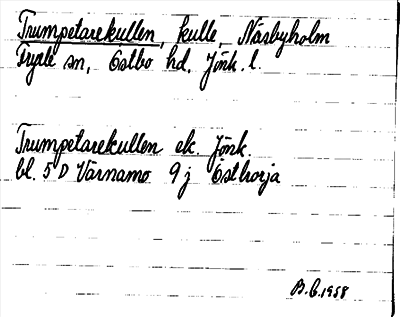 Trumpetarekullen, kulle, Näsbyholm
Fryele sn, Östbo hd. Jönk. l.
Trumpetarekullen ek. Jönk.
bl. 5 D Värnamo 9 j Östhorja
B.G. 1958